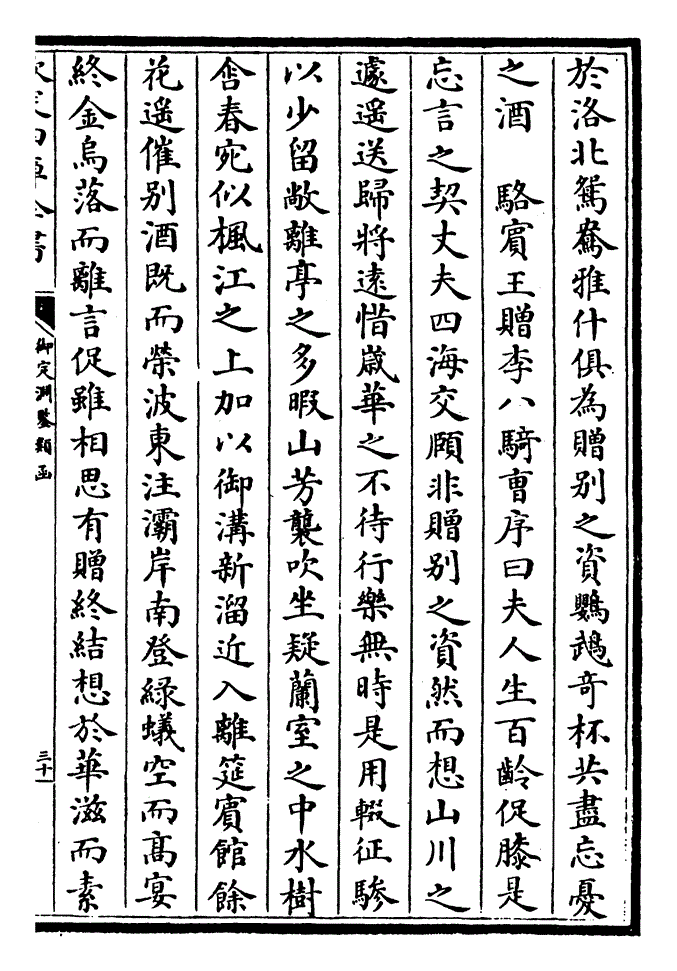 於洛北鴛鴦雅什俱為贈别之資鸚鵡奇杯共盡忘憂
之酒　駱賓王贈李八騎曹序曰夫人生百齡促膝是
忘言之契丈夫四海交頤非贈别之資然而想山川之
遽遥送歸將逺惜歳華之不待行樂無時是用輟征驂
以少留敞離亭之多暇山芳襲吹坐疑蘭室之中水樹
含春宛似楓江之上加以御溝新溜近入離筵賓館餘
花遥催别酒既而榮波東注灞岸南登緑蟻空而髙宴
終金烏落而離言促雖相思有贈終結想於華滋而素
御定淵鑒類函
三十